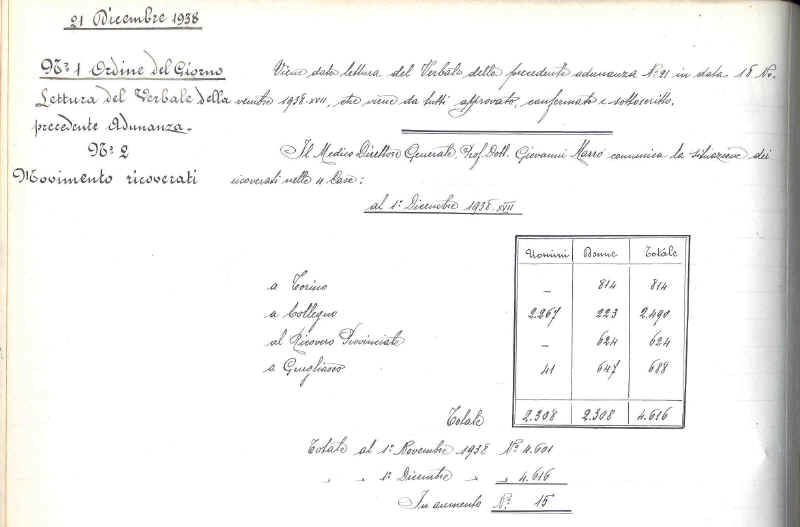 21 Dicembre 1938
Nº 1 Ordine del Giorno
Lettura del Verbale della
precedente Adunanza.
Viene data lettura del Verbale della precedente adunanza Nº 21 in data 18 No-
vembre 1938-XVII, che viene da tutti approvato, confermato e sottoscritto.
Nº 2
Movimento ricoverati
Il Medico Direttore Generale, Prof. Dott. Giovanni Marro comunica la situazione dei
ricoverati nelle 4 Case:
al 1º Dicembre 1938-XVII
Uomini Donne Totale
a Torino – 814 814
a Collegno 2.267 223 2.490
al Ricovero Provinciale – 624 624
a Grugliasco 41 647 688
Totale 2.308 2.308 4.616
Totale al 1º Novembre 1938 Nº 4.601
" " 1º Dicembre " " 4.616
In aumento Nº 15